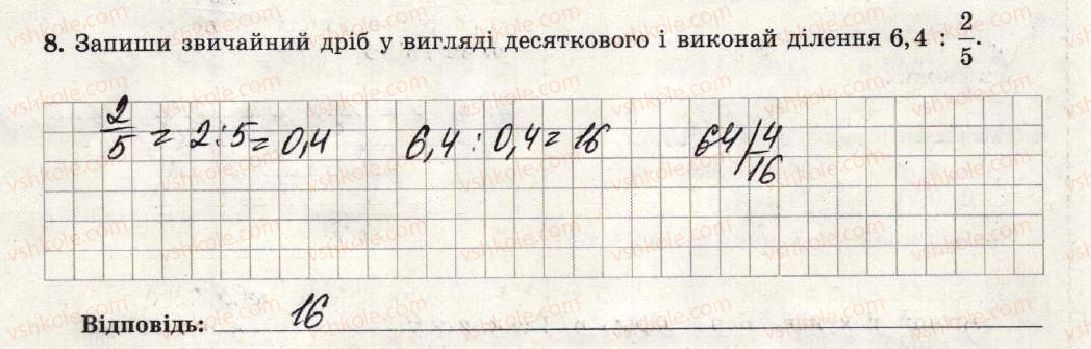 8. Запиши звичайний дріб у вигляді десяткового і виконай ділення 6,4 : 2/5.
2/5 = 2:5 = 0,4 6,4 : 0,4 = 16 64 | 4
16
Відповідь: 16